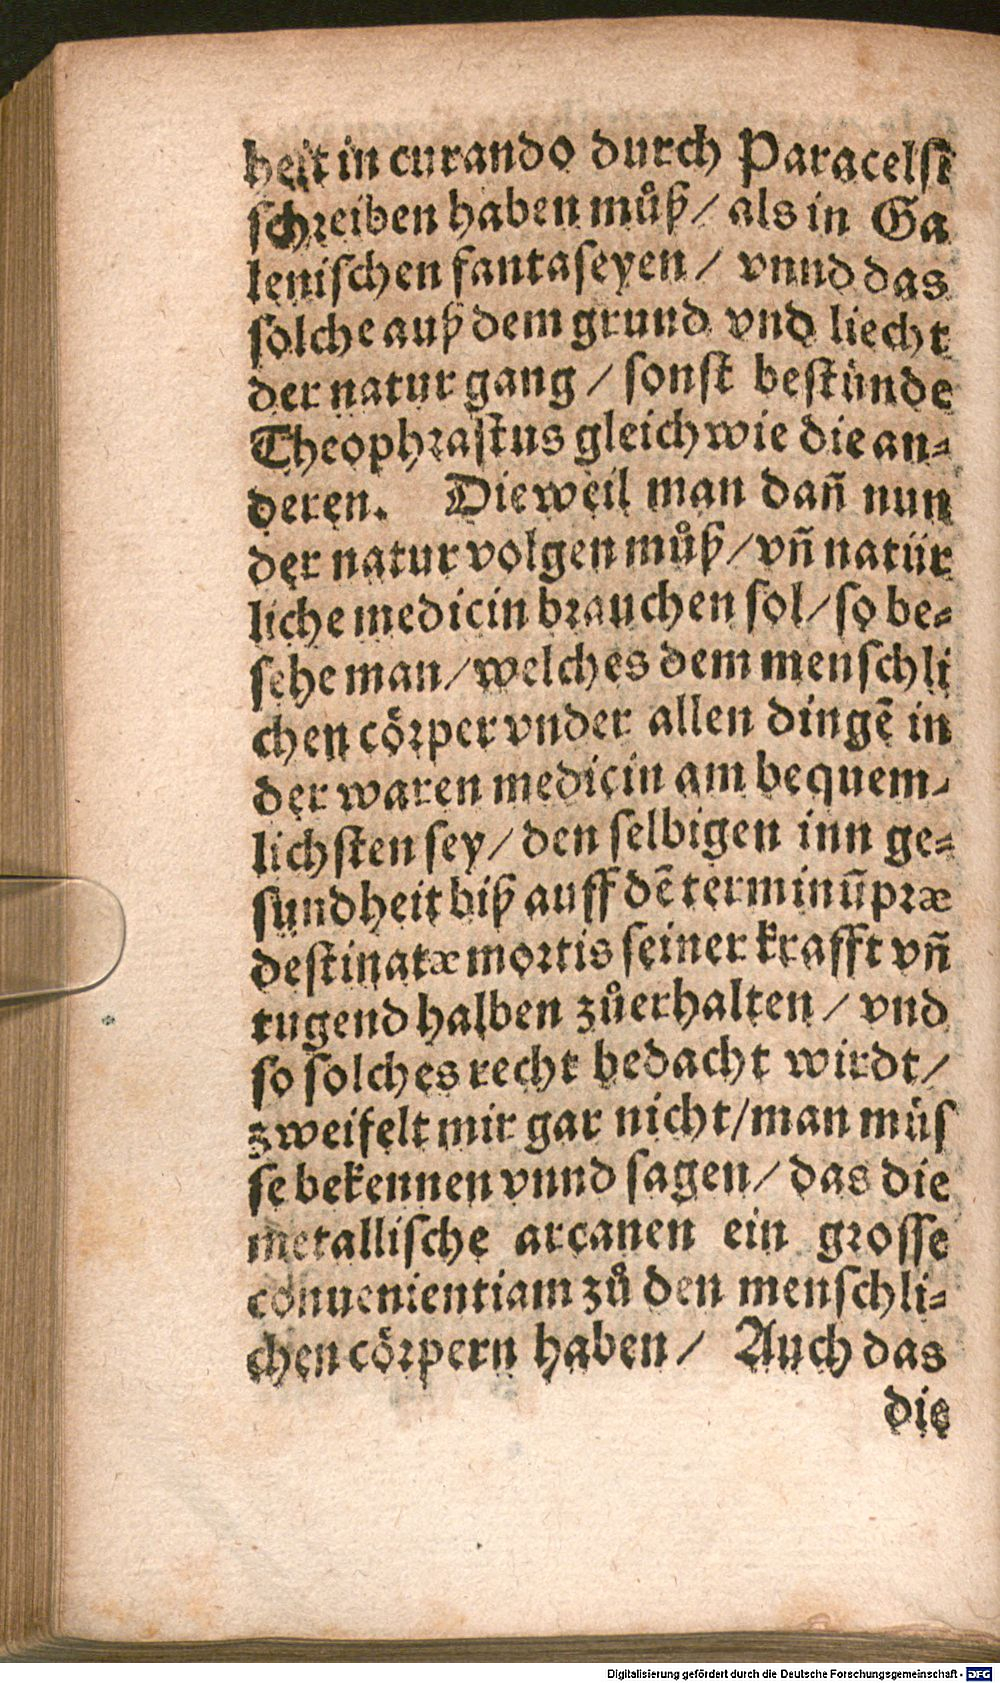 heit in curando durch Paracelsi
schreiben haben můß/ als in Ga
lenischen fantaseyen/ vnnd das
solche auß dem grund vnd liecht
der natur gang/ sonst bestünde
Theophrastus gleich wie die an⸗
deren. Dieweil man dañ nun
der natur volgen můß/ vñ natür
liche medicin brauchen sol/ so be⸗
sehe man/ welches dem menschli
chen cörper vnder allen dingẽ in
der waren medicin am bequem⸗
lichsten sey/ den selbigen inn ge⸗
sundheit biß auff dẽ terminũ præ
destinatæ mortis seiner krafft vñ
tugend halben zůerhalten/ vnd
so solches recht bedacht wirdt/
zweifelt mir gar nicht/ man müs
se bekennen vnnd sagen/ das die
metallische arcanen ein grosse
conuenientiam zů den menschli⸗
chen cörpern haben/ Auch das
die
Digitalisierung gefördert durch die Deutsche Forschungsgemeinschaft - DFG